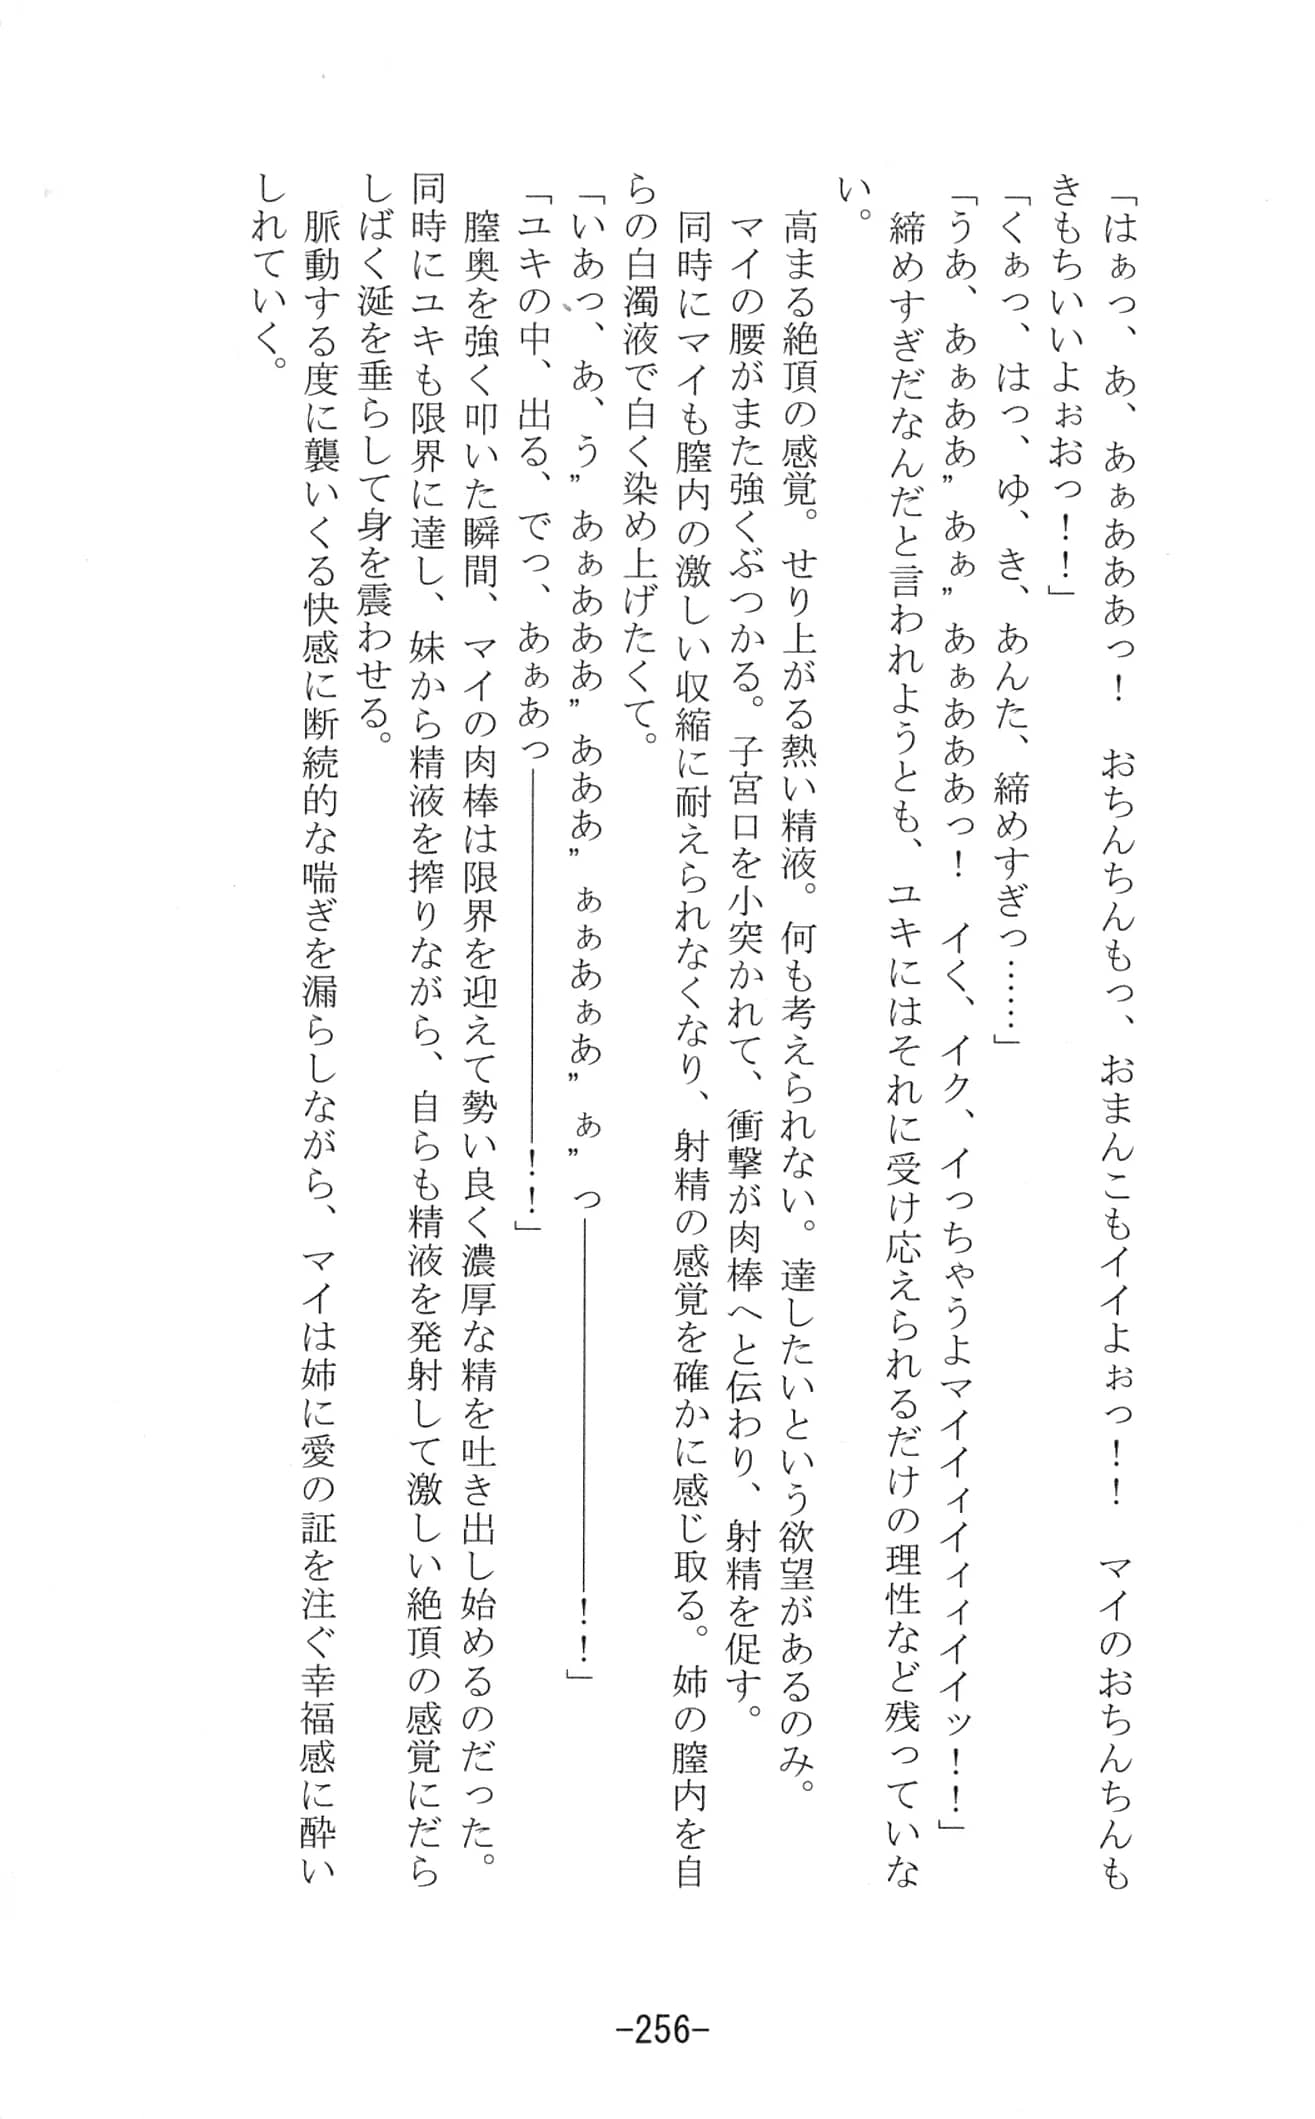 「はぁっ、あ、あぁあああっ！　おちんちんもっ、おまんこもイイよぉっ！！　マイのおちんちんも
きもちいいよぉおっ！！」
「くぁっ、はっ、ゆ、き、あんた、締めすぎっ……」
「うあ、あぁああ”あぁ”あぁあああっ！　イく、イク、イっちゃうよマイイィイィィイイッ！！」
　締めすぎだなんだと言われようとも、ユキにはそれに受け応えられるだけの理性など残っていな
い。
　高まる絶頂の感覚。せり上がる熱い精液。何も考えられない。達したいという欲望があるのみ。
　マイの腰がまた強くぶつかる。子宮口を小突かれて、衝撃が肉棒へと伝わり、射精を促す。
　同時にマイも膣内の激しい収縮に耐えられなくなり、射精の感覚を確かに感じ取る。姉の膣内を自
らの白濁液で白く染め上げたくて。
「いあっ、あ、う”あぁああ”ああ”ぁぁあぁあ”ぁ”っ――――――――――！！」
「ユキの中、出る、でっ、あぁあっ――――――――――！！」
　膣奥を強く叩いた瞬間、マイの肉棒は限界を迎えて勢い良く濃厚な精を吐き出し始めるのだった。
同時にユキも限界に達し、妹から精液を搾りながら、自らも精液を発射して激しい絶頂の感覚にだら
しばく涎を垂らして身を震わせる。
　脈動する度に襲いくる快感に断続的な喘ぎを漏らしながら、マイは姉に愛の証を注ぐ幸福感に酔い
しれていく。
-256-